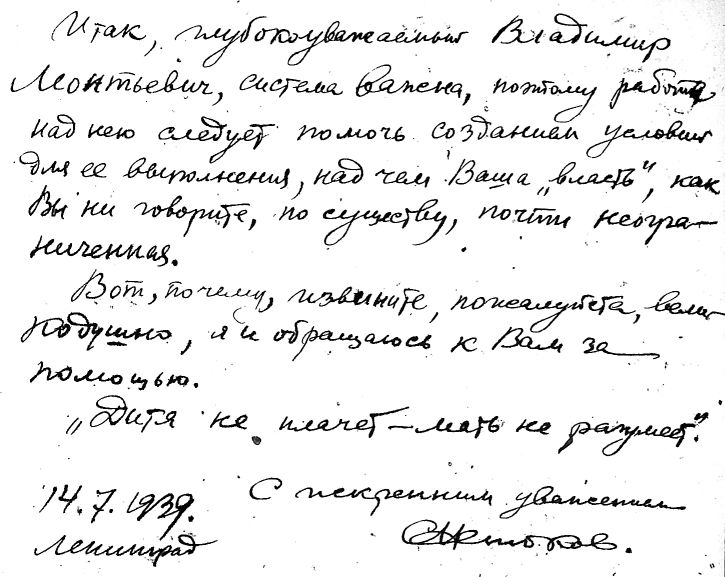 Итак, глубокоуважаемый Владимир
Леонтьевич, система важна, поэтому работе
над нею следует помочь созданием условий
для ее выполнения, над чем Ваша „власть", как
Вы ни говорите, по существу, почти неогра-
ниченная.
Вот, почему, извините, пожалуйста, вели-
кодушно, я и обращаюсь к Вам за
помощью.
„Дитя не плачет – мать не разумеет".
С искренним уважением
14.7.1939.
Ленинград